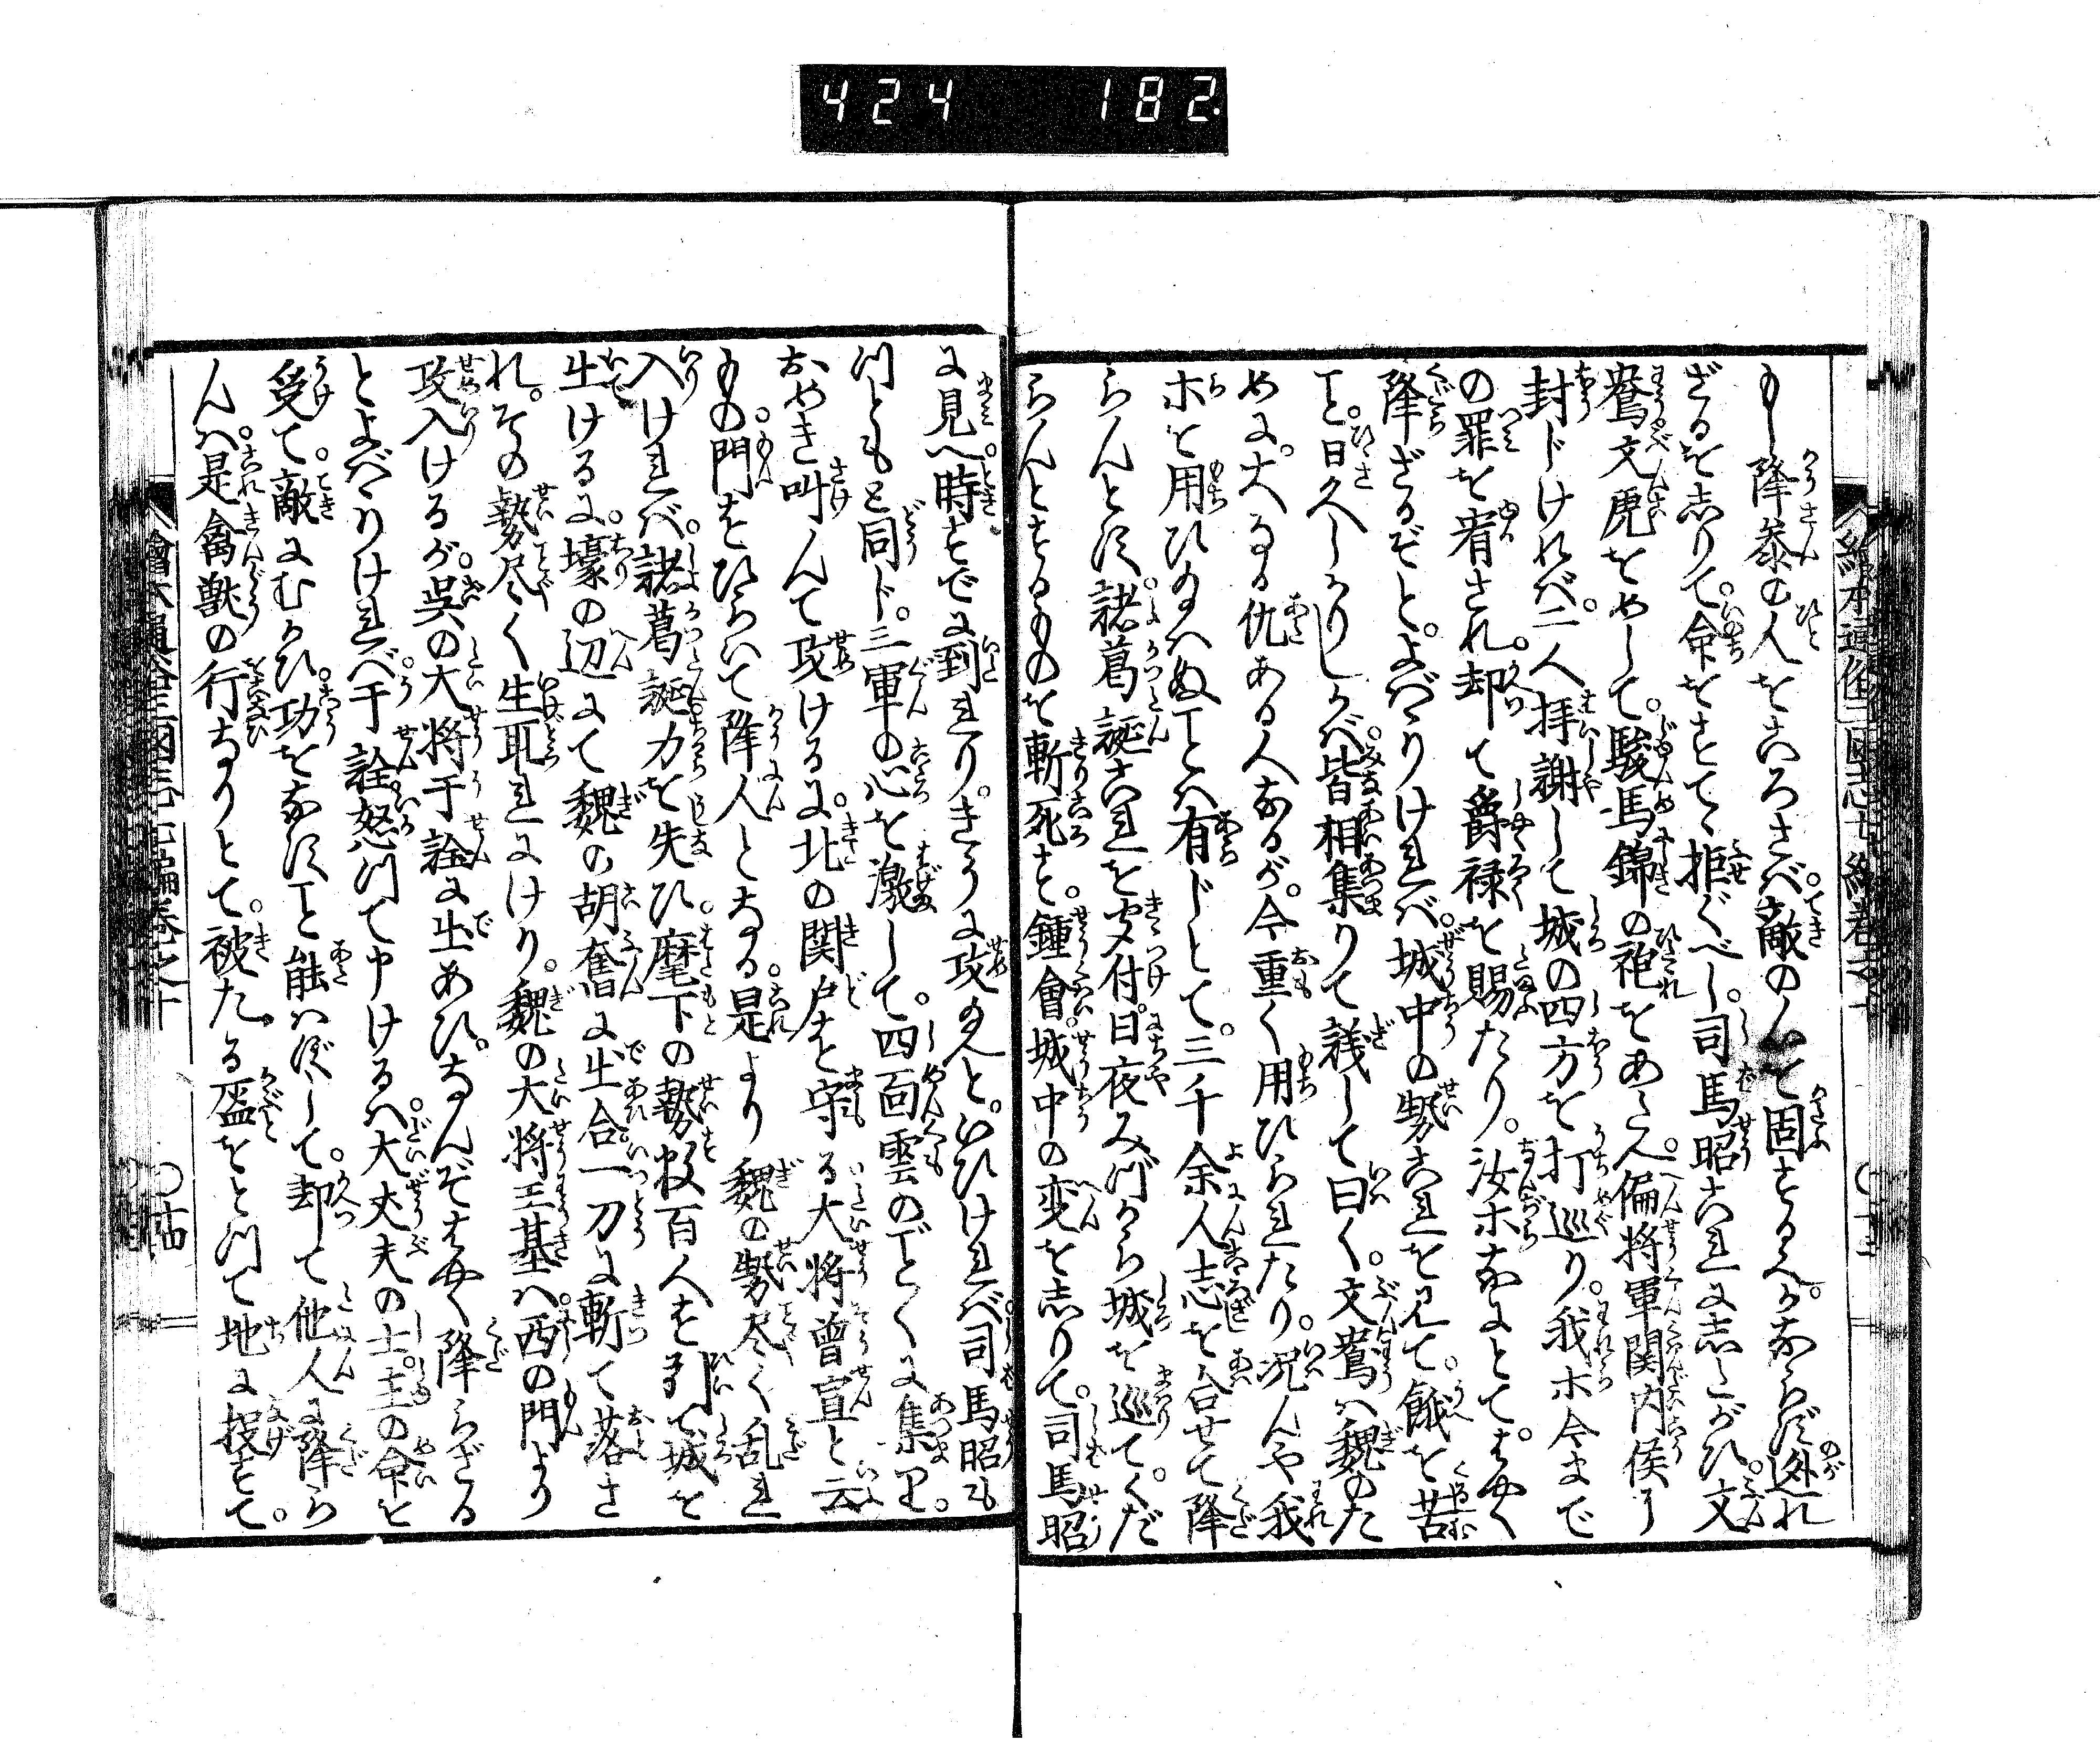 424 182
もし降参の人をころさバ。敵のんを固するへ。かならず迯れ
ざるを志りて。命をすてゝ拒ぐべし。司馬昭これに志たがひ。文
鴦文虎をめして。駿馬錦の袍をあたへ。偏将軍関内侯に
封ドけれバ。二人拝謝して城の四方を打巡り。我ホ今まで
の罪を宥され。却て爵禄を賜たり。汝ホなにとて。はやく
降ざるぞと。よばゝりけれバ。城中の勢これを見て。餓を苦
こと。日久しかりしかバ。皆相集りて議して曰く。文鴦ハ魏のた
めに。大なる仇ある人なるが。今重く用ひられたり。况んや我
ホを用ひ給ハぬことハ有じとて。三千余人志を合せて降
らんとす。諸葛誕これを聞付。日夜みづから城を巡て。くだ
らんとするものを斬死す。鍾會城中の変を志りて。司馬昭
に見へ。時すでに到れり。きうに攻給へと。いひけれバ。司馬昭も
つともと同ド。三軍の心を激して。四面雲のごとくに集り。
おめき叫んで攻けるに。北の関戸を守る大将曽宣と云
もの。門をひらいて降人となる。是より魏の勢尽く乱れ
入けれバ。諸葛誕力を失ひ。麾下の勢数百人を引て城を
出ける に。壕の辺にて魏の胡奮に出合。一刀に斬て落さ
れ。その勢尽く生取れにけり。魏の大将王基ハ。西の門より
攻入けるが。呉の大将于詮に出あひ。なんぞはやく降らざる
とよばゝりけれバ。于詮怒つて申けるハ。大丈夫の士。主の命を
受て。敵にむかひ。功をなすこと能ハずして。却て他人に降ら
んハ。是禽獣の行なりとて。被たる盔をとつて地に投すて。